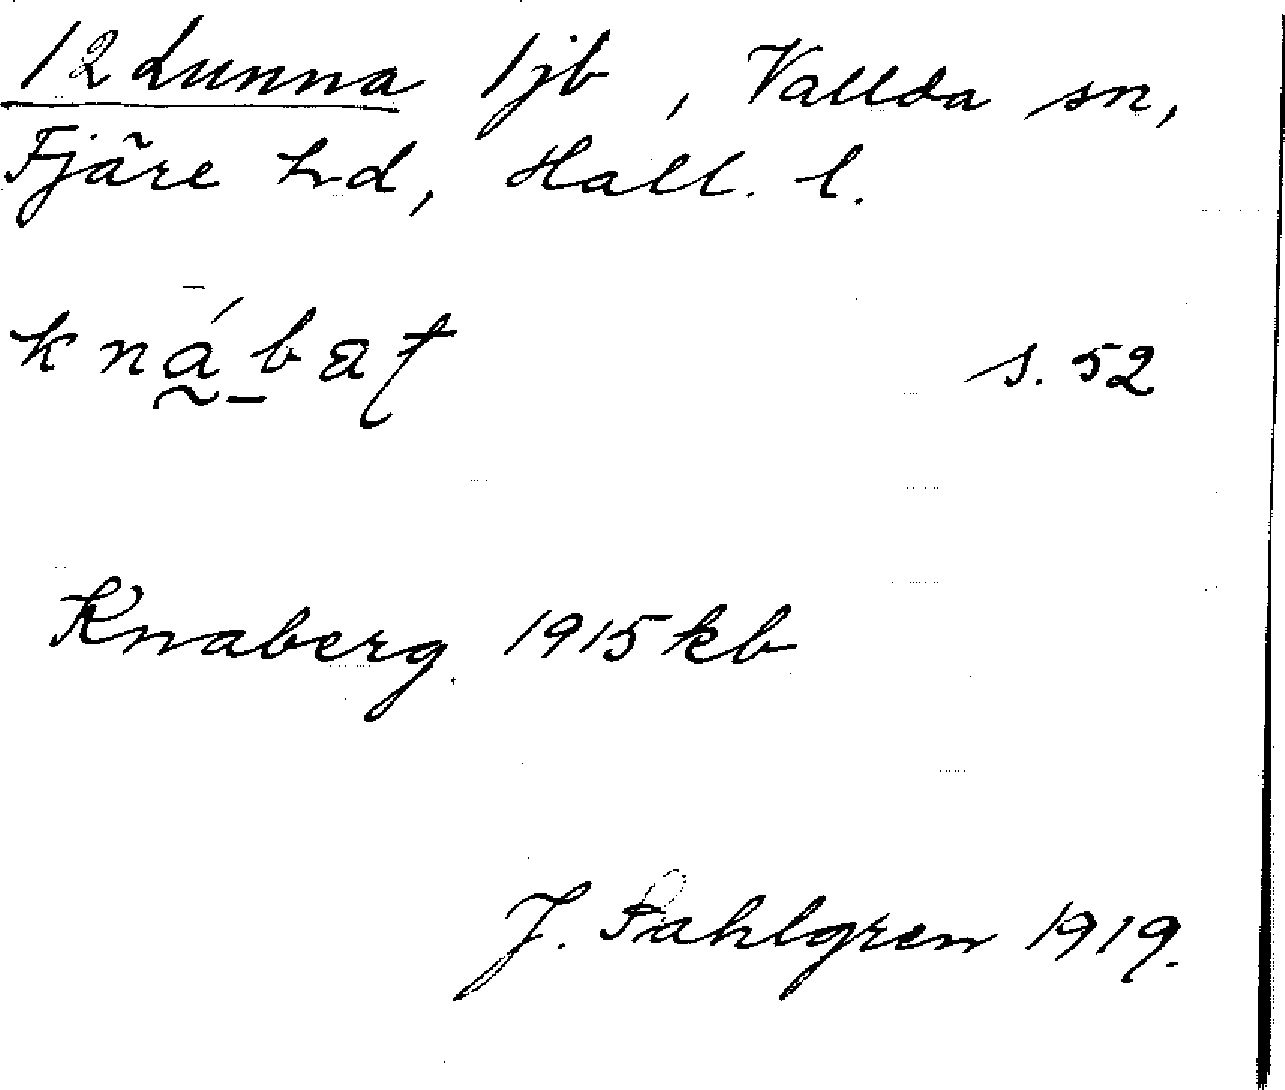 12 Lunna 1jb, Vallda sn,
Fjäre hd, Hall. l.
s. 52
Knaberg. 1915 kb
J. Sahlgren 1919.